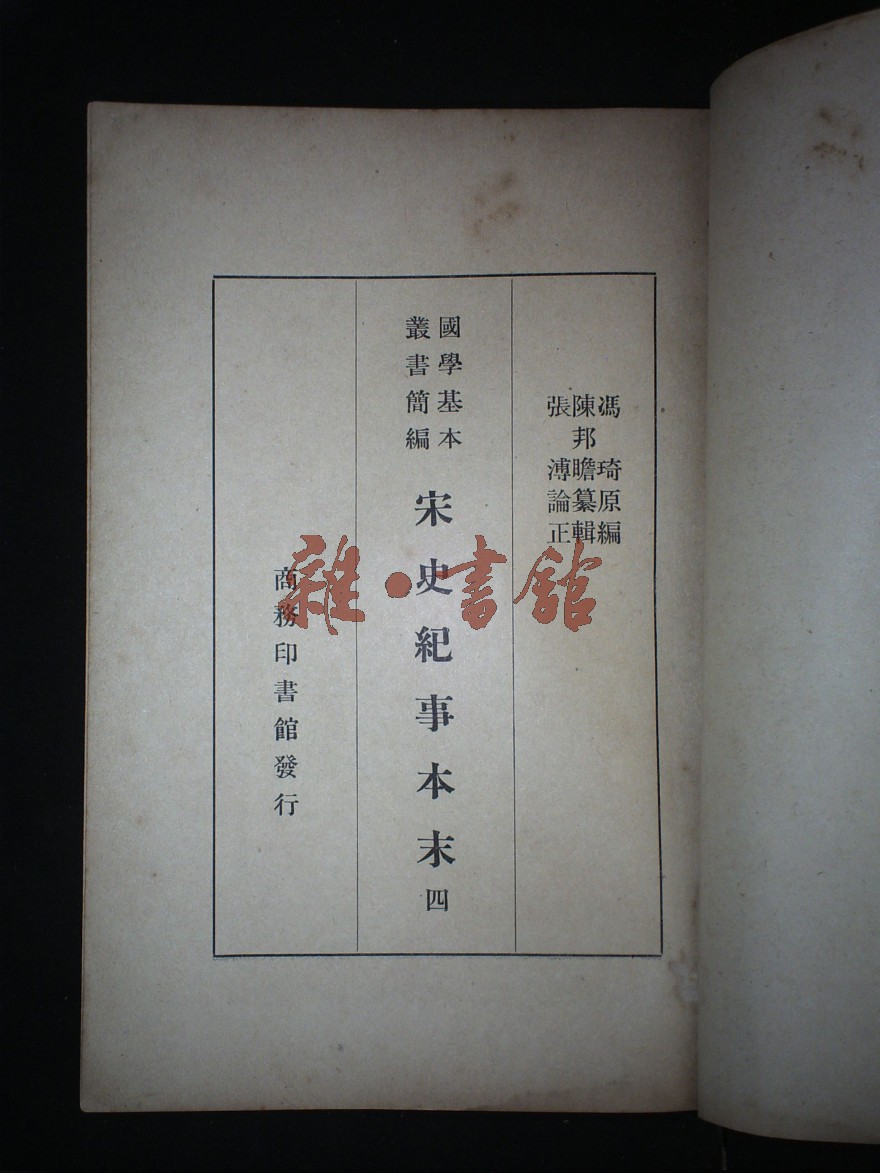 馮琦原編
陳邦瞻纂輯
張溥論正
國學基本
叢書簡編
宋史紀事本末四
商務印書館發行
雜·書館